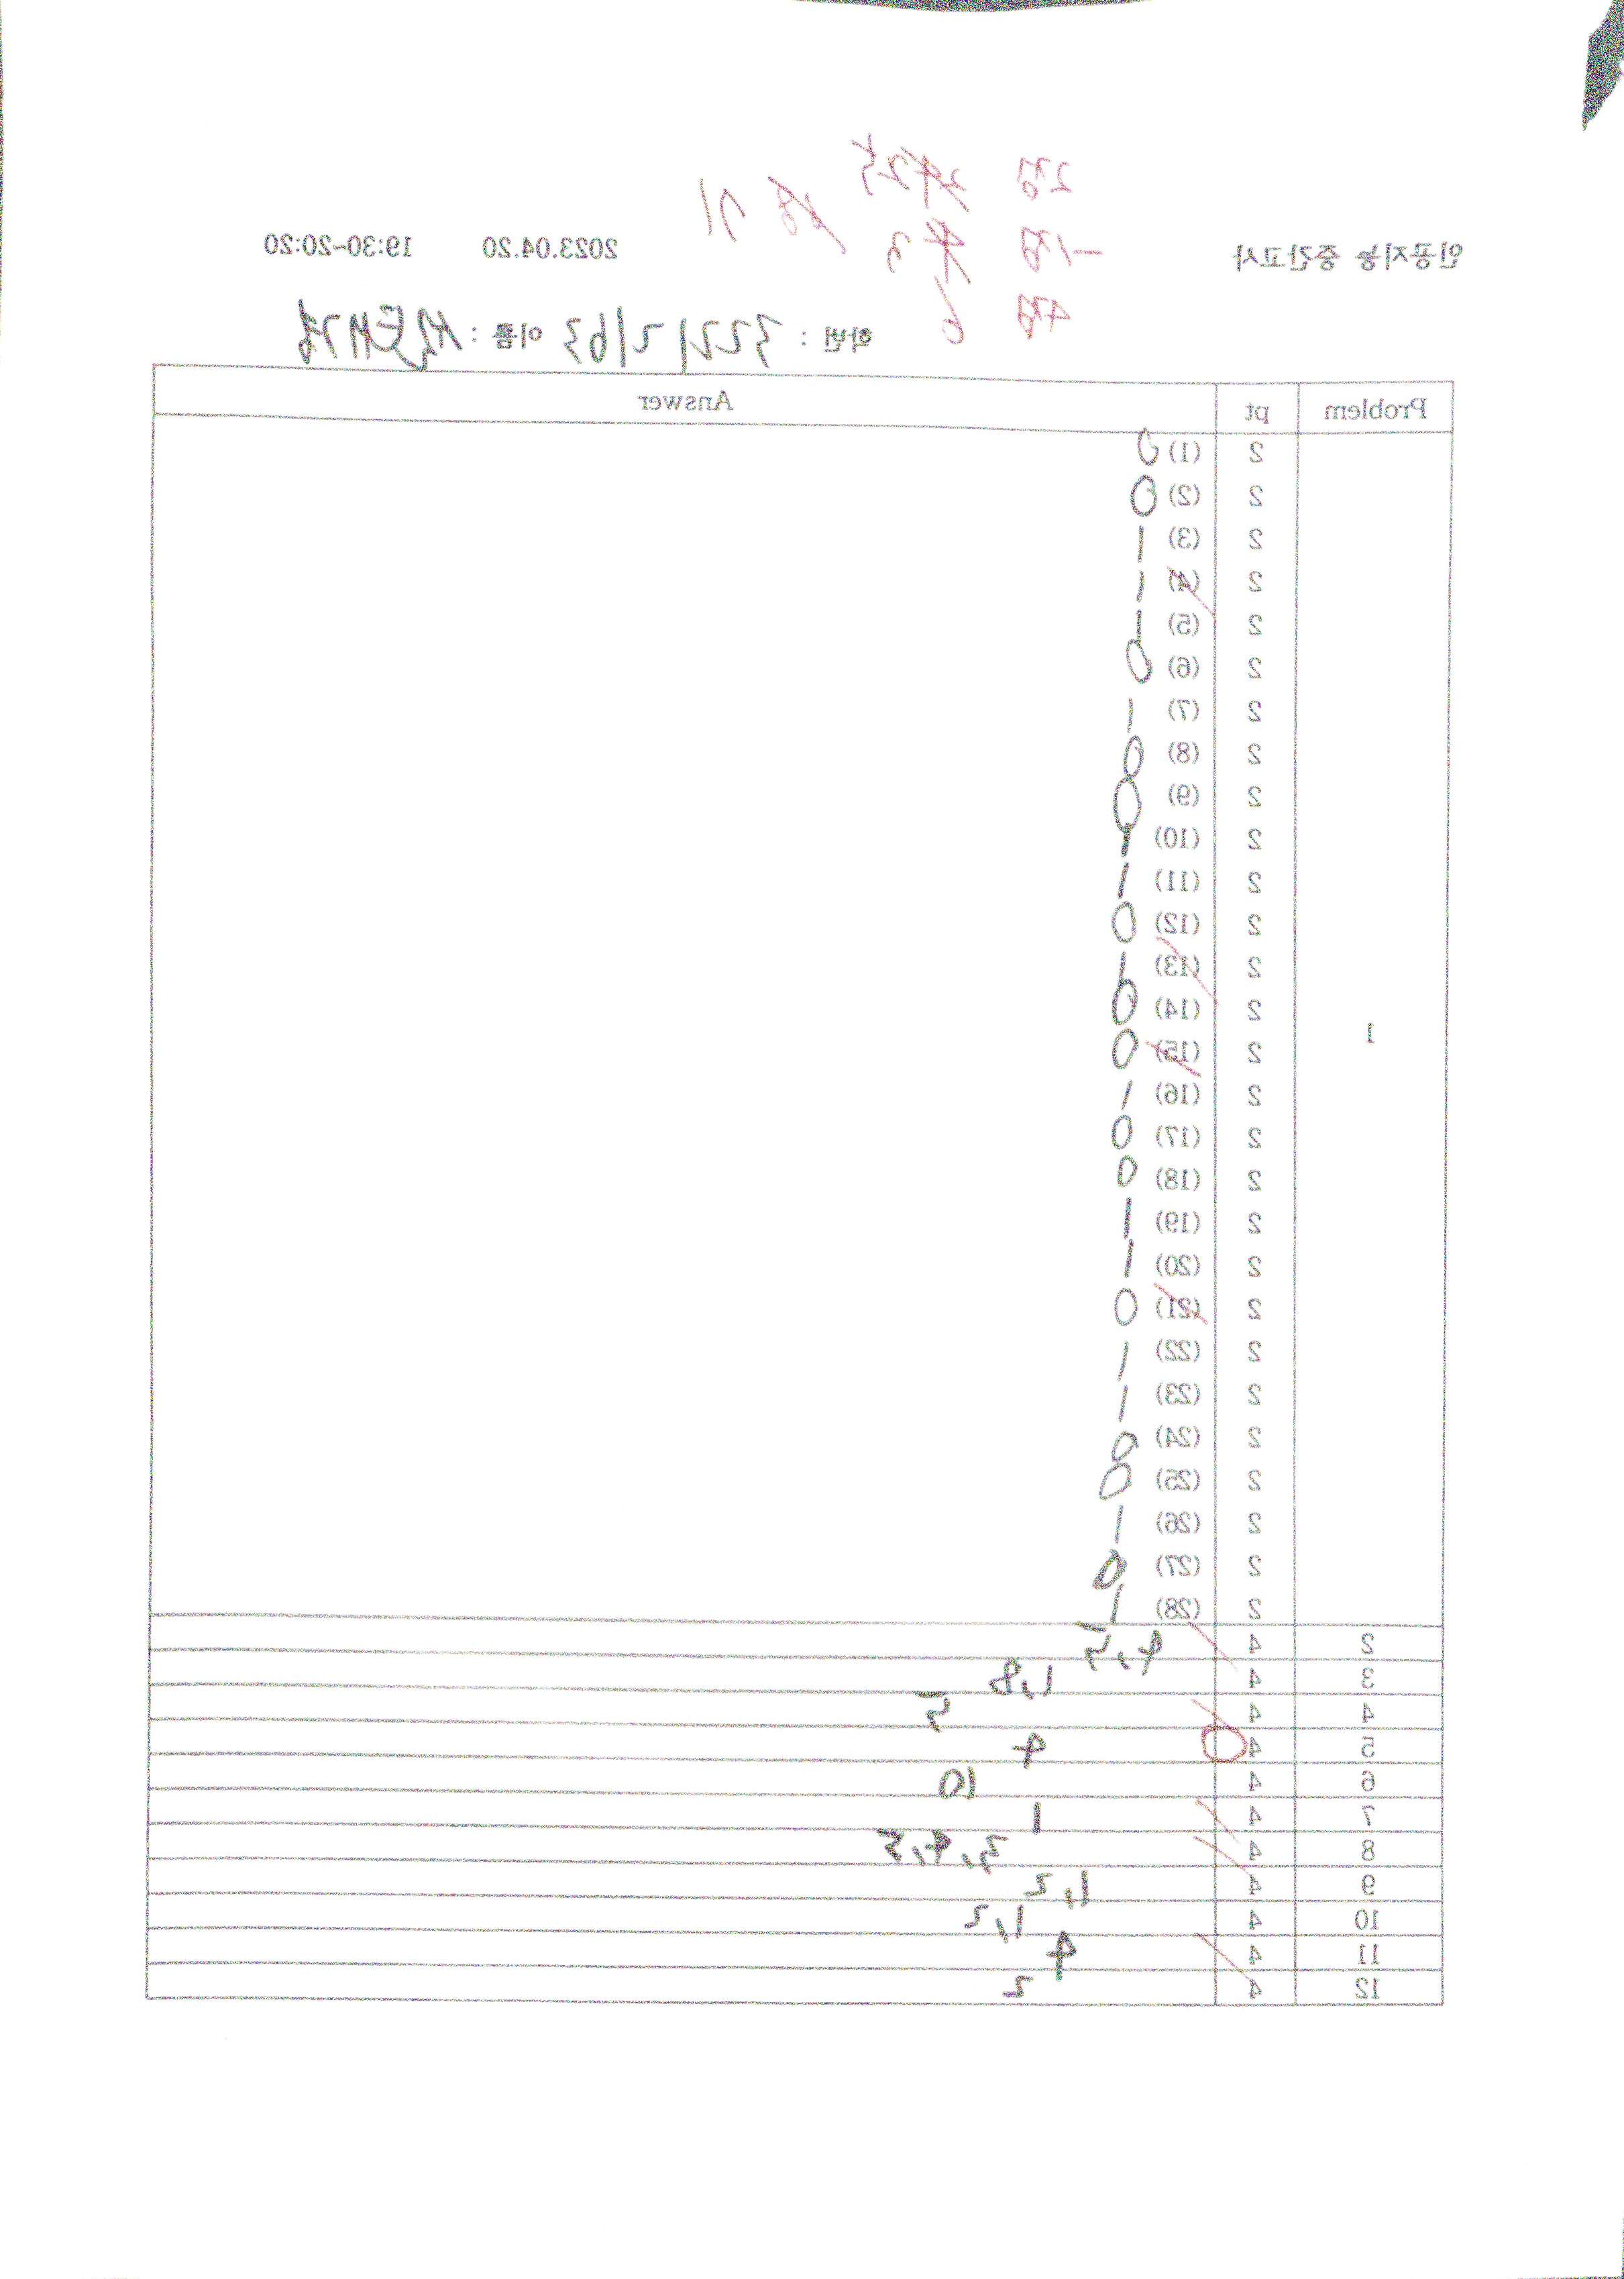 2점
-1점
4점 6
인공지능 중간고사 2023.04.20 19:30~20:20
학번 : 32212163 이름 : 설태경
Problem pt Answer
1
2 (1) 0
2 (2) 0
2 (3) 1
2 (4) 1
2 (5) 1
2 (6) 0
2 (7) 1
2 (8) 0
2 (9) 0
2 (10) 1
2 (11) 1
2 (12) 0
2 (13) 1
2 (14) 0
2 (15) 0
2 (16) 1
2 (17) 0
2 (18) 0
2 (19) 1
2 (20) 1
2 (21) 0
2 (22) 1
2 (23) 1
2 (24) 0
2 (25) 0
2 (26) 1
2 (27) 0
2 (28) 1
2 4 4,5
3 4 1,8
4 4 5
5 4 4
6 4 10
7 4 1
8 4 3,4,5
9 4 1,2
10 4 1,2
11 4 4
12 4 2